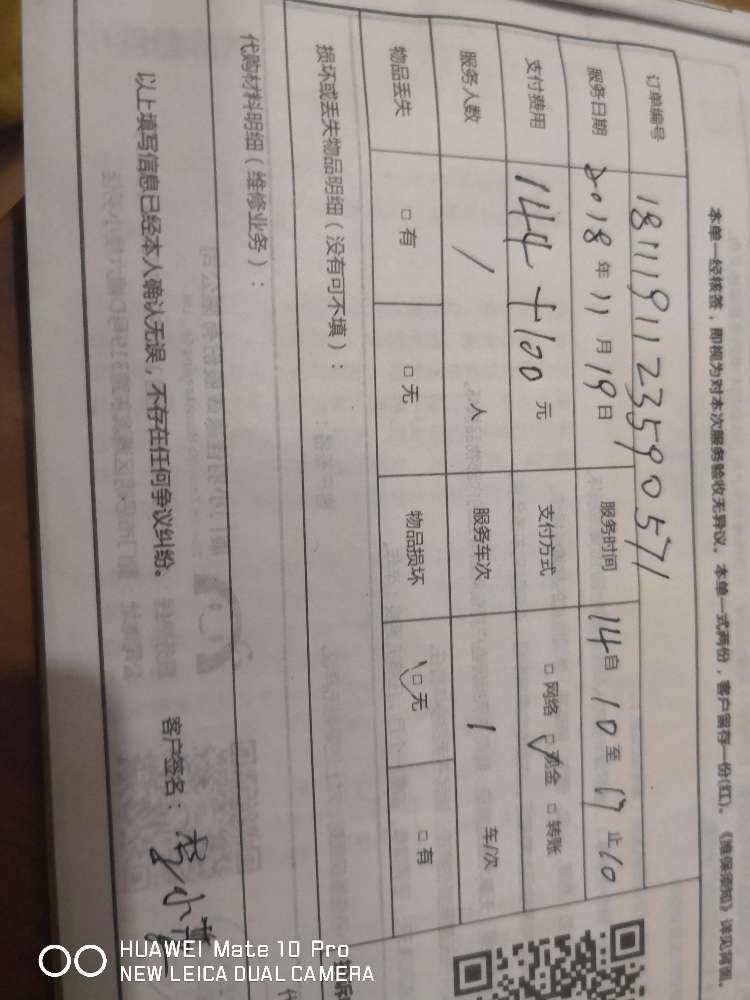 本单一经核签，即视为对本次服务验收无异议。本单一式两份，客户留存一份(红)。《维保须知》详见背面。
订单编号 1811191123590571
服务日期 2018年11月19日 服务时间 14自10至17止10
支付费用 144+100元 支付方式 □网络 □现金 □转账
服务人数 / 人 服务车次 1 车/次
物品丢失 □有 □无 物品损坏 □无 □有
损坏或丢失物品明细（没有可不填）：
代购材料明细（维修业务）：
以上填写信息已经本人确认无误，不存在任何争议纠纷。 客户签名：李小
HUAWEI Mate 10 Pro
NEW LEICA DUAL CAMERA